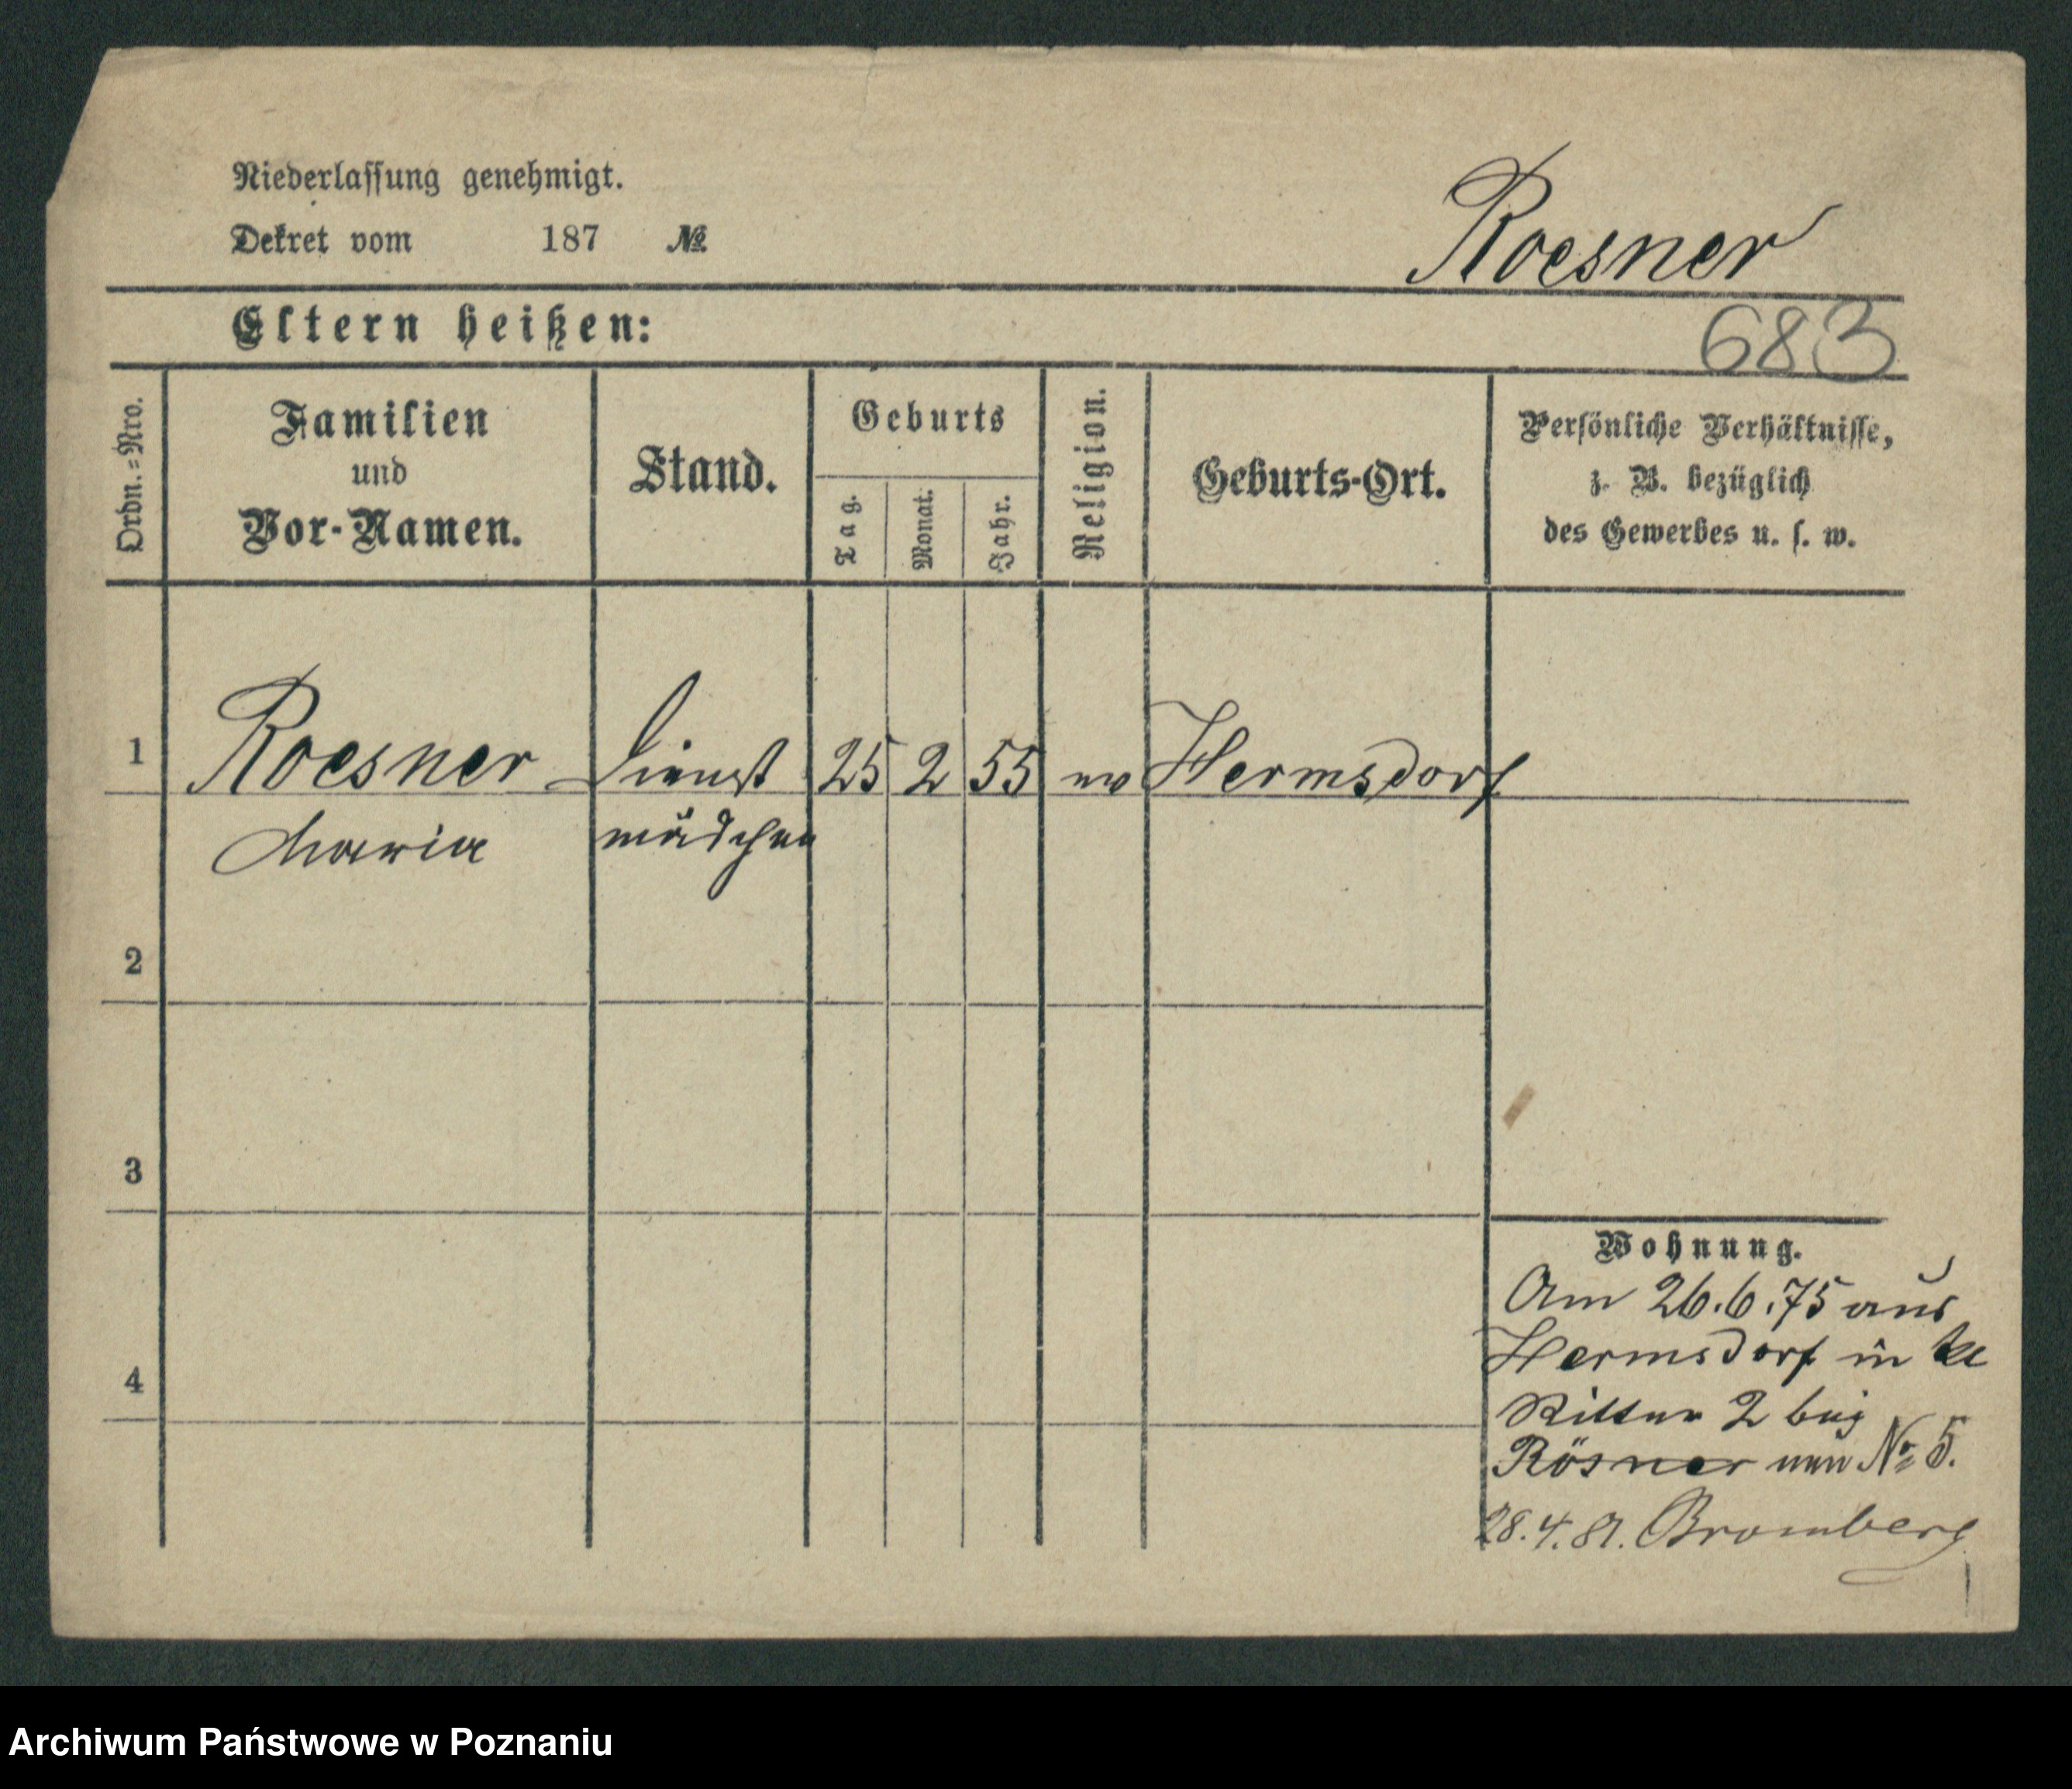 Niederlassung genehmigt.
Dekret vom 187 №
Roesner
Eltern heißen:
683
Ordn.=Nro.
Familien
und
Vor-Namen.
Stand.
Geburts
Tag.
Monat.
Jahr.
Religion.
Geburts-Ort.
Persönliche Verhältnisse,
z. B. bezüglich
des Gewerbes u. s. w.
1 Roesner Dienst 25 2 55 ev Hermsdorf
Maria mädchen
2
3
4
Wohnung.
Am 26.6.75 aus
Hermsdorf in kl
Ritter 2 bei
Rösner nun № 5.
28.4.81. Bromberg
Archiwum Państwowe w Poznaniu